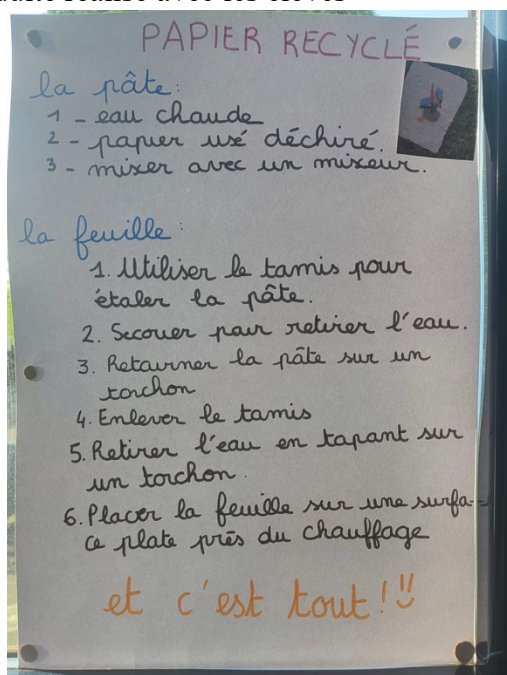 PAPIER RECYCLÉ
la pâte:
1 - eau chaude
2 - papier usé déchiré.
3 - mixer avec un mixeur.
la feuille:
1. Utiliser le tamis pour
étaler la pâte.
2. Secouer pour retirer l'eau.
3. Retourner la pâte sur un
torchon
4. Enlever le tamis
5. Retirer l'eau en tapant sur
un torchon.
6. Placer la feuille sur une surfa-
ce plate près du chauffage
et c'est tout!!!